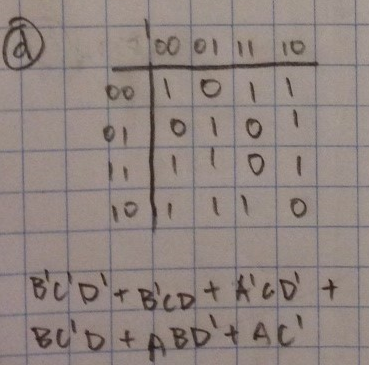 d
00 01 11 10
00 1 0 1 1
01 0 1 0 1
11 1 1 0 1
10 1 1 1 0
B'C'D' + B'CD + A'CD' +
BC'D + ABD' + AC'